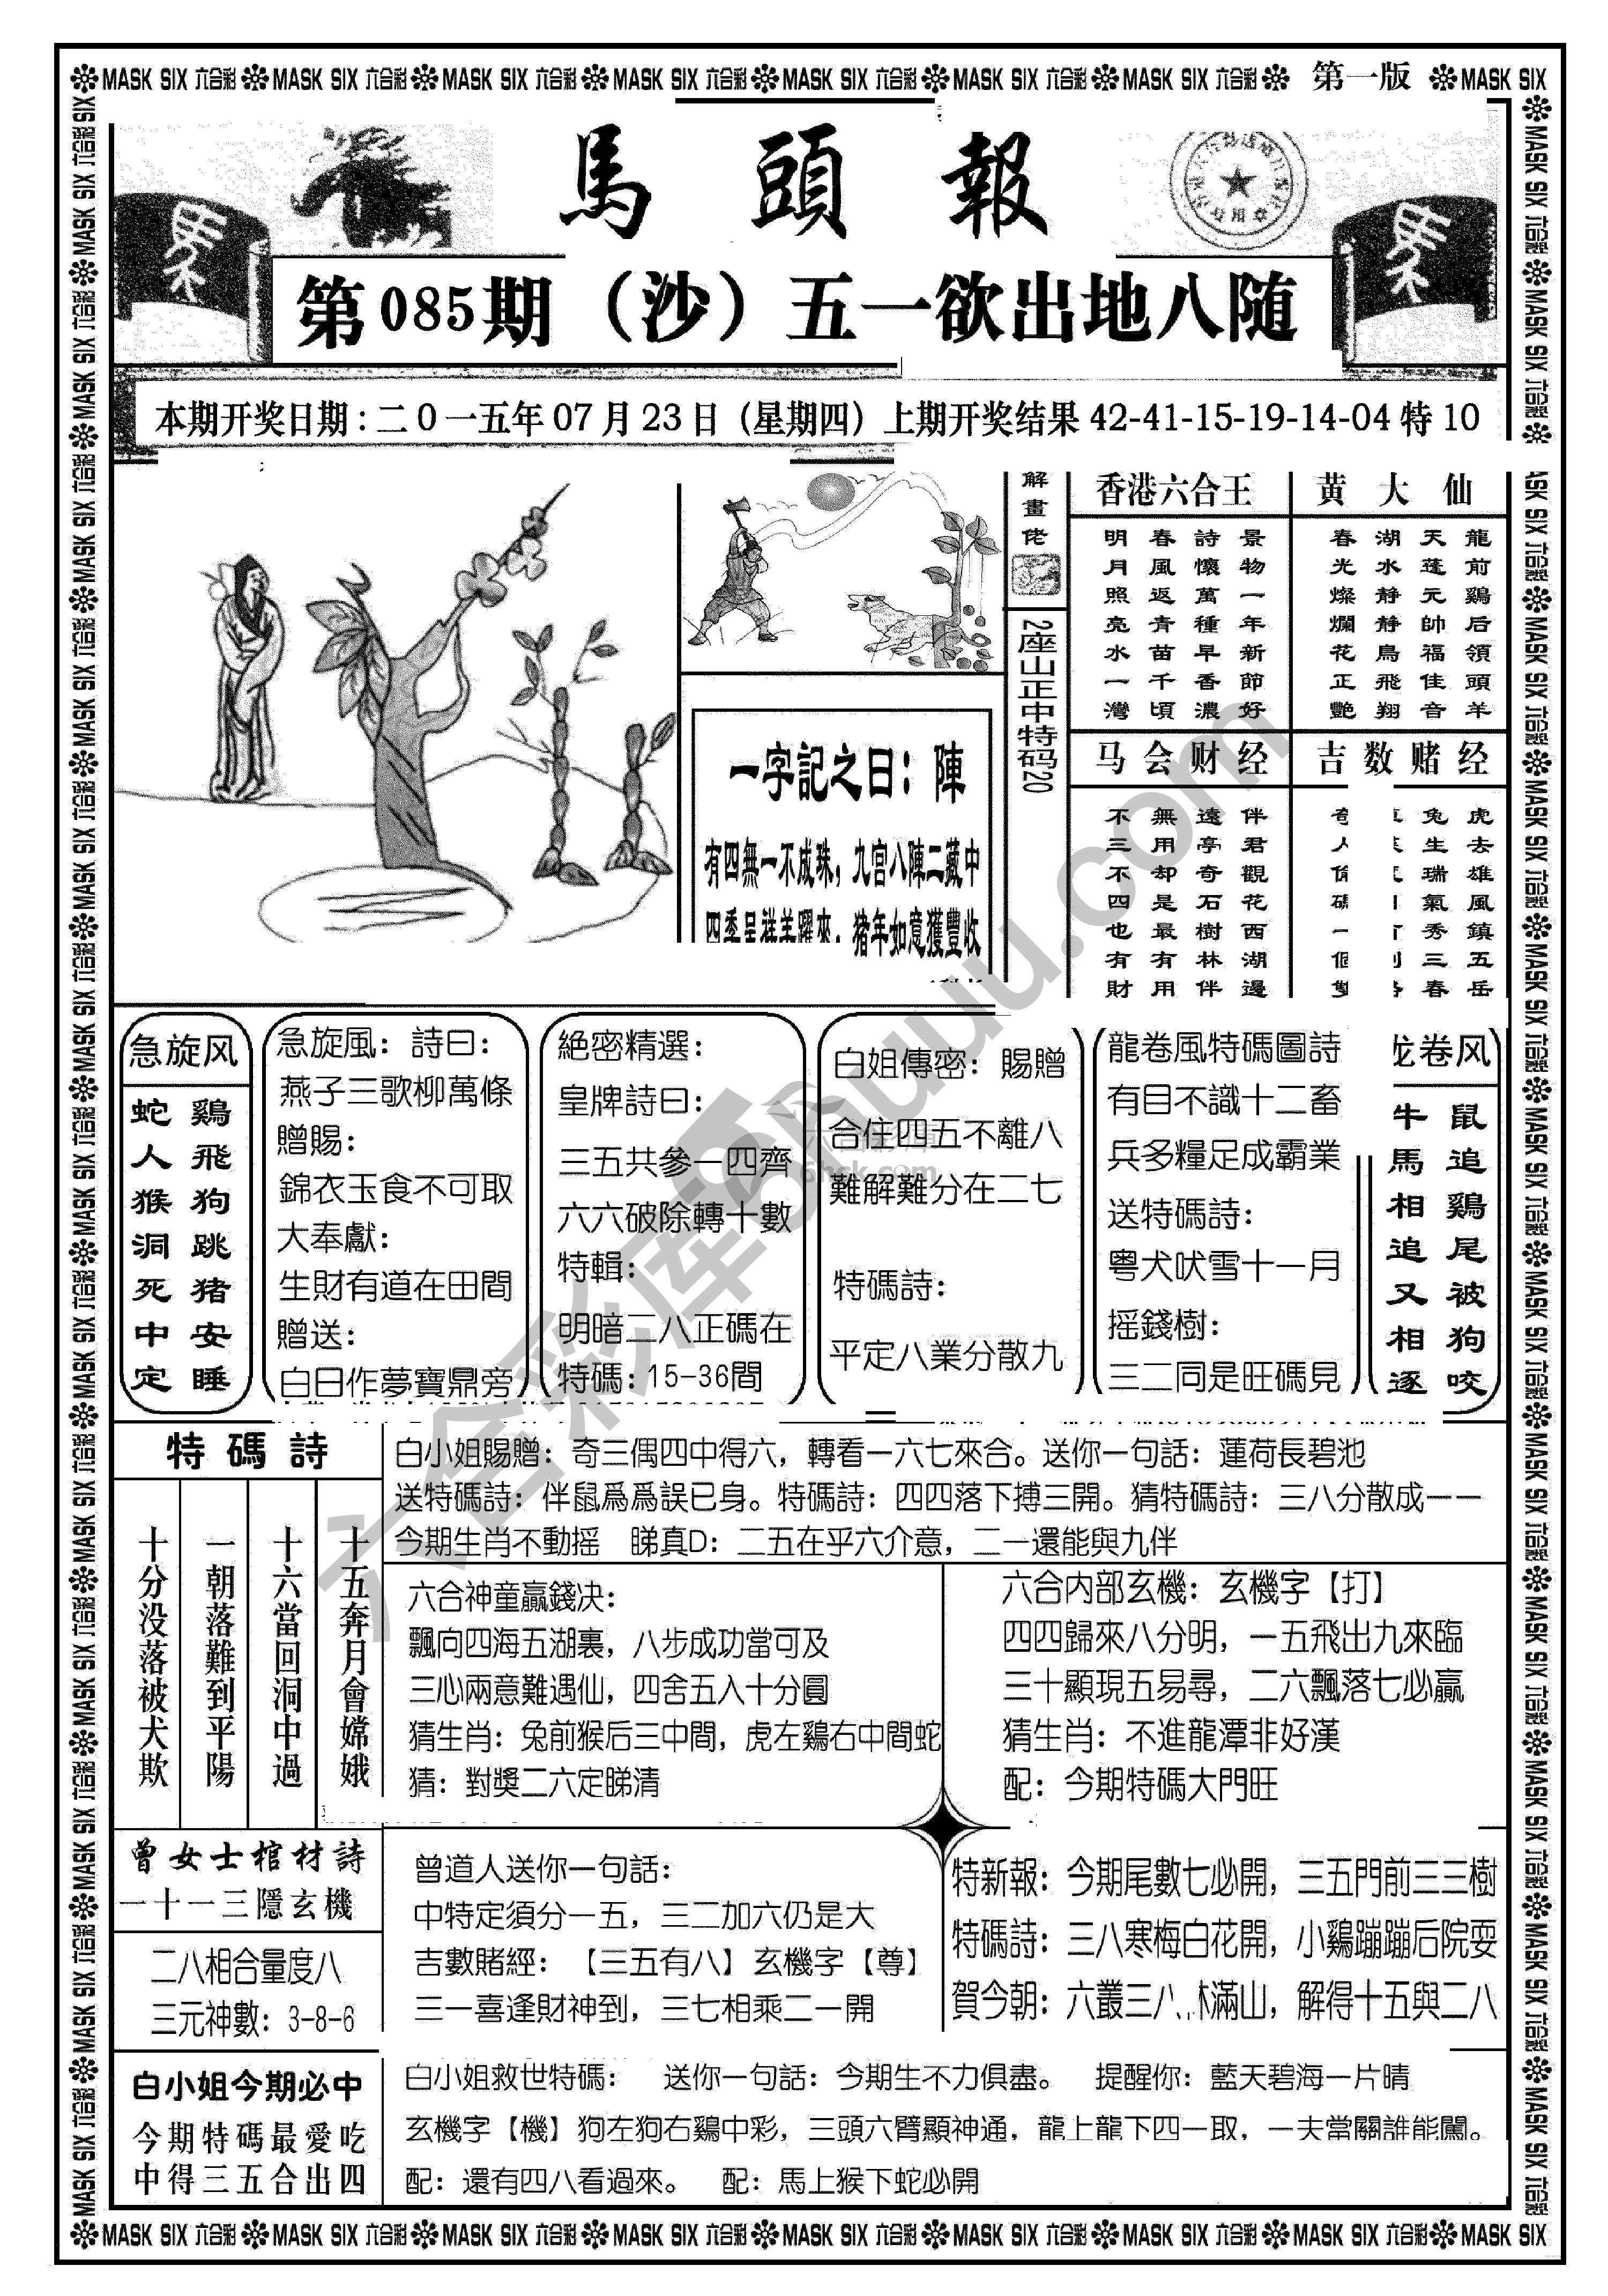 MASK SIX 六合彩 MASK SIX 六合彩 MASK SIX 六合彩 MASK SIX 六合彩 MASK SIX 六合彩 MASK SIX 六合彩 MASK SIX 六合彩 第一版 MASK SIX
馬頭報
第085期（沙）五一欲出地八随
本期开奖日期：二0一五年07月23日（星期四）上期开奖结果42-41-15-19-14-04特10
解畫佬
2座山正中特码20
一字記之曰：陳
有四無一不成珠，九宫八陳二藏中
四季呈祥羊躍來，猪年如意獲豐收
香港六合王
景物一年新節好
詩懷萬種早香濃
春風返青苗千頃
明月照亮水一灣
黄大仙
龍前鷄后領頭羊
天蓬元帥福佳音
湖水静静鳥飛翔
春光燦爛花正艷
马会财经
伴君觀花西湖邊
遠亭奇石樹林伴
無用却是最有用
不三不四也有財
吉数赌经
虎去雄風鎮五岳
兔生瑞氣秀三春
急旋风
鷄飛狗跳猪安睡
蛇人猴洞死中定
急旋風：詩曰：
燕子三歌柳萬條
贈賜：
錦衣玉食不可取
大奉獻：
生財有道在田間
贈送：
白日作夢寶鼎旁
絕密精選：
皇牌詩曰：
三五共參一四齊
六六破除轉十數
特輯：
明暗二八正碼在
特碼：15-36間
白姐傳密：賜贈
合住四五不離八
難解難分在二七
特碼詩：
平定八業分散九
龍卷風特碼圖詩
有目不識十二畜
兵多糧足成霸業
送特碼詩：
粤犬吠雪十一月
摇錢樹：
三二同是旺碼見
龙卷风
鼠追鷄尾被狗咬
牛馬相追又相逐
特碼詩
十五奔月會嫦娥
十六當回洞中過
一朝落難到平陽
十分没落被犬欺
白小姐賜贈：奇三偶四中得六，轉看一六七來合。送你一句話：蓮荷長碧池
送特碼詩：伴鼠爲爲誤已身。特碼詩：四四落下搏三開。猜特碼詩：三八分散成一一
今期生肖不動摇 睇真D：二五在乎六介意，二一還能與九伴
六合神童贏錢决：
飄向四海五湖裏，八步成功當可及
三心兩意難遇仙，四舍五入十分圓
猜生肖：兔前猴后三中間，虎左鷄右中間蛇
猜：對獎二六定睇清
六合内部玄機：玄機字【打】
四四歸來八分明，一五飛出九來臨
三十顯現五易尋，二六飄落七必贏
猜生肖：不進龍潭非好漢
配：今期特碼大門旺
曾女士棺材詩
一十一三隱玄機
二八相合量度八
三元神數：3-8-6
曾道人送你一句話：
中特定須分一五，三二加六仍是大
吉數賭經：【三五有八】玄機字【尊】
三一喜逢財神到，三七相乘二一開
特新報：今期尾數七必開，三五門前三三樹
特碼詩：三八寒梅白花開，小鷄蹦蹦后院耍
賀今朝：六叢三八 滿山，解得十五與二八
白小姐今期必中
今期特碼最愛吃
中得三五合出四
白小姐救世特碼： 送你一句話：今期生不力俱盡。 提醒你：藍天碧海一片晴
玄機字【機】狗左狗右鷄中彩，三頭六臂顯神通，龍上龍下四一取，一夫當關誰能闖。
配：還有四八看過來。 配：馬上猴下蛇必開
MASK SIX 六合彩 MASK SIX 六合彩 MASK SIX 六合彩 MASK SIX 六合彩 MASK SIX 六合彩 MASK SIX 六合彩 MASK SIX 六合彩 MASK SIX 六合彩 MASK SIX
六合彩库6huuu.com